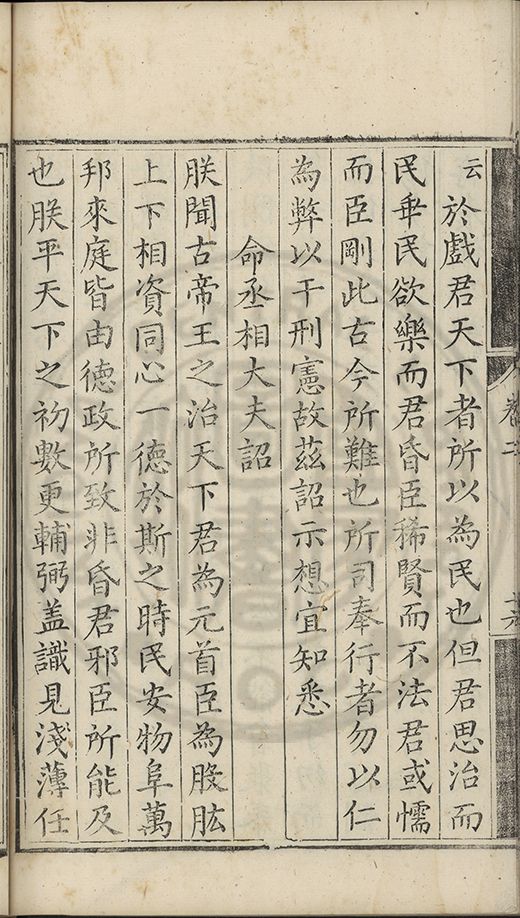 云於戲君天下者所以為民也但君思治而
民乖民欲樂而君昏臣稀賢而不法君或懦
而臣剛此古今所難也所司奉行者勿以仁
為弊以干刑憲故茲詔示想宜知悉
命丞相大夫詔
朕聞古帝王之治天下君為元首臣為股肱
上下相資同心一德於斯之時民安物阜萬
邦來庭皆由德政所致非昏君邪臣所能及
也朕平天下之初數更輔弼盖識見淺薄任